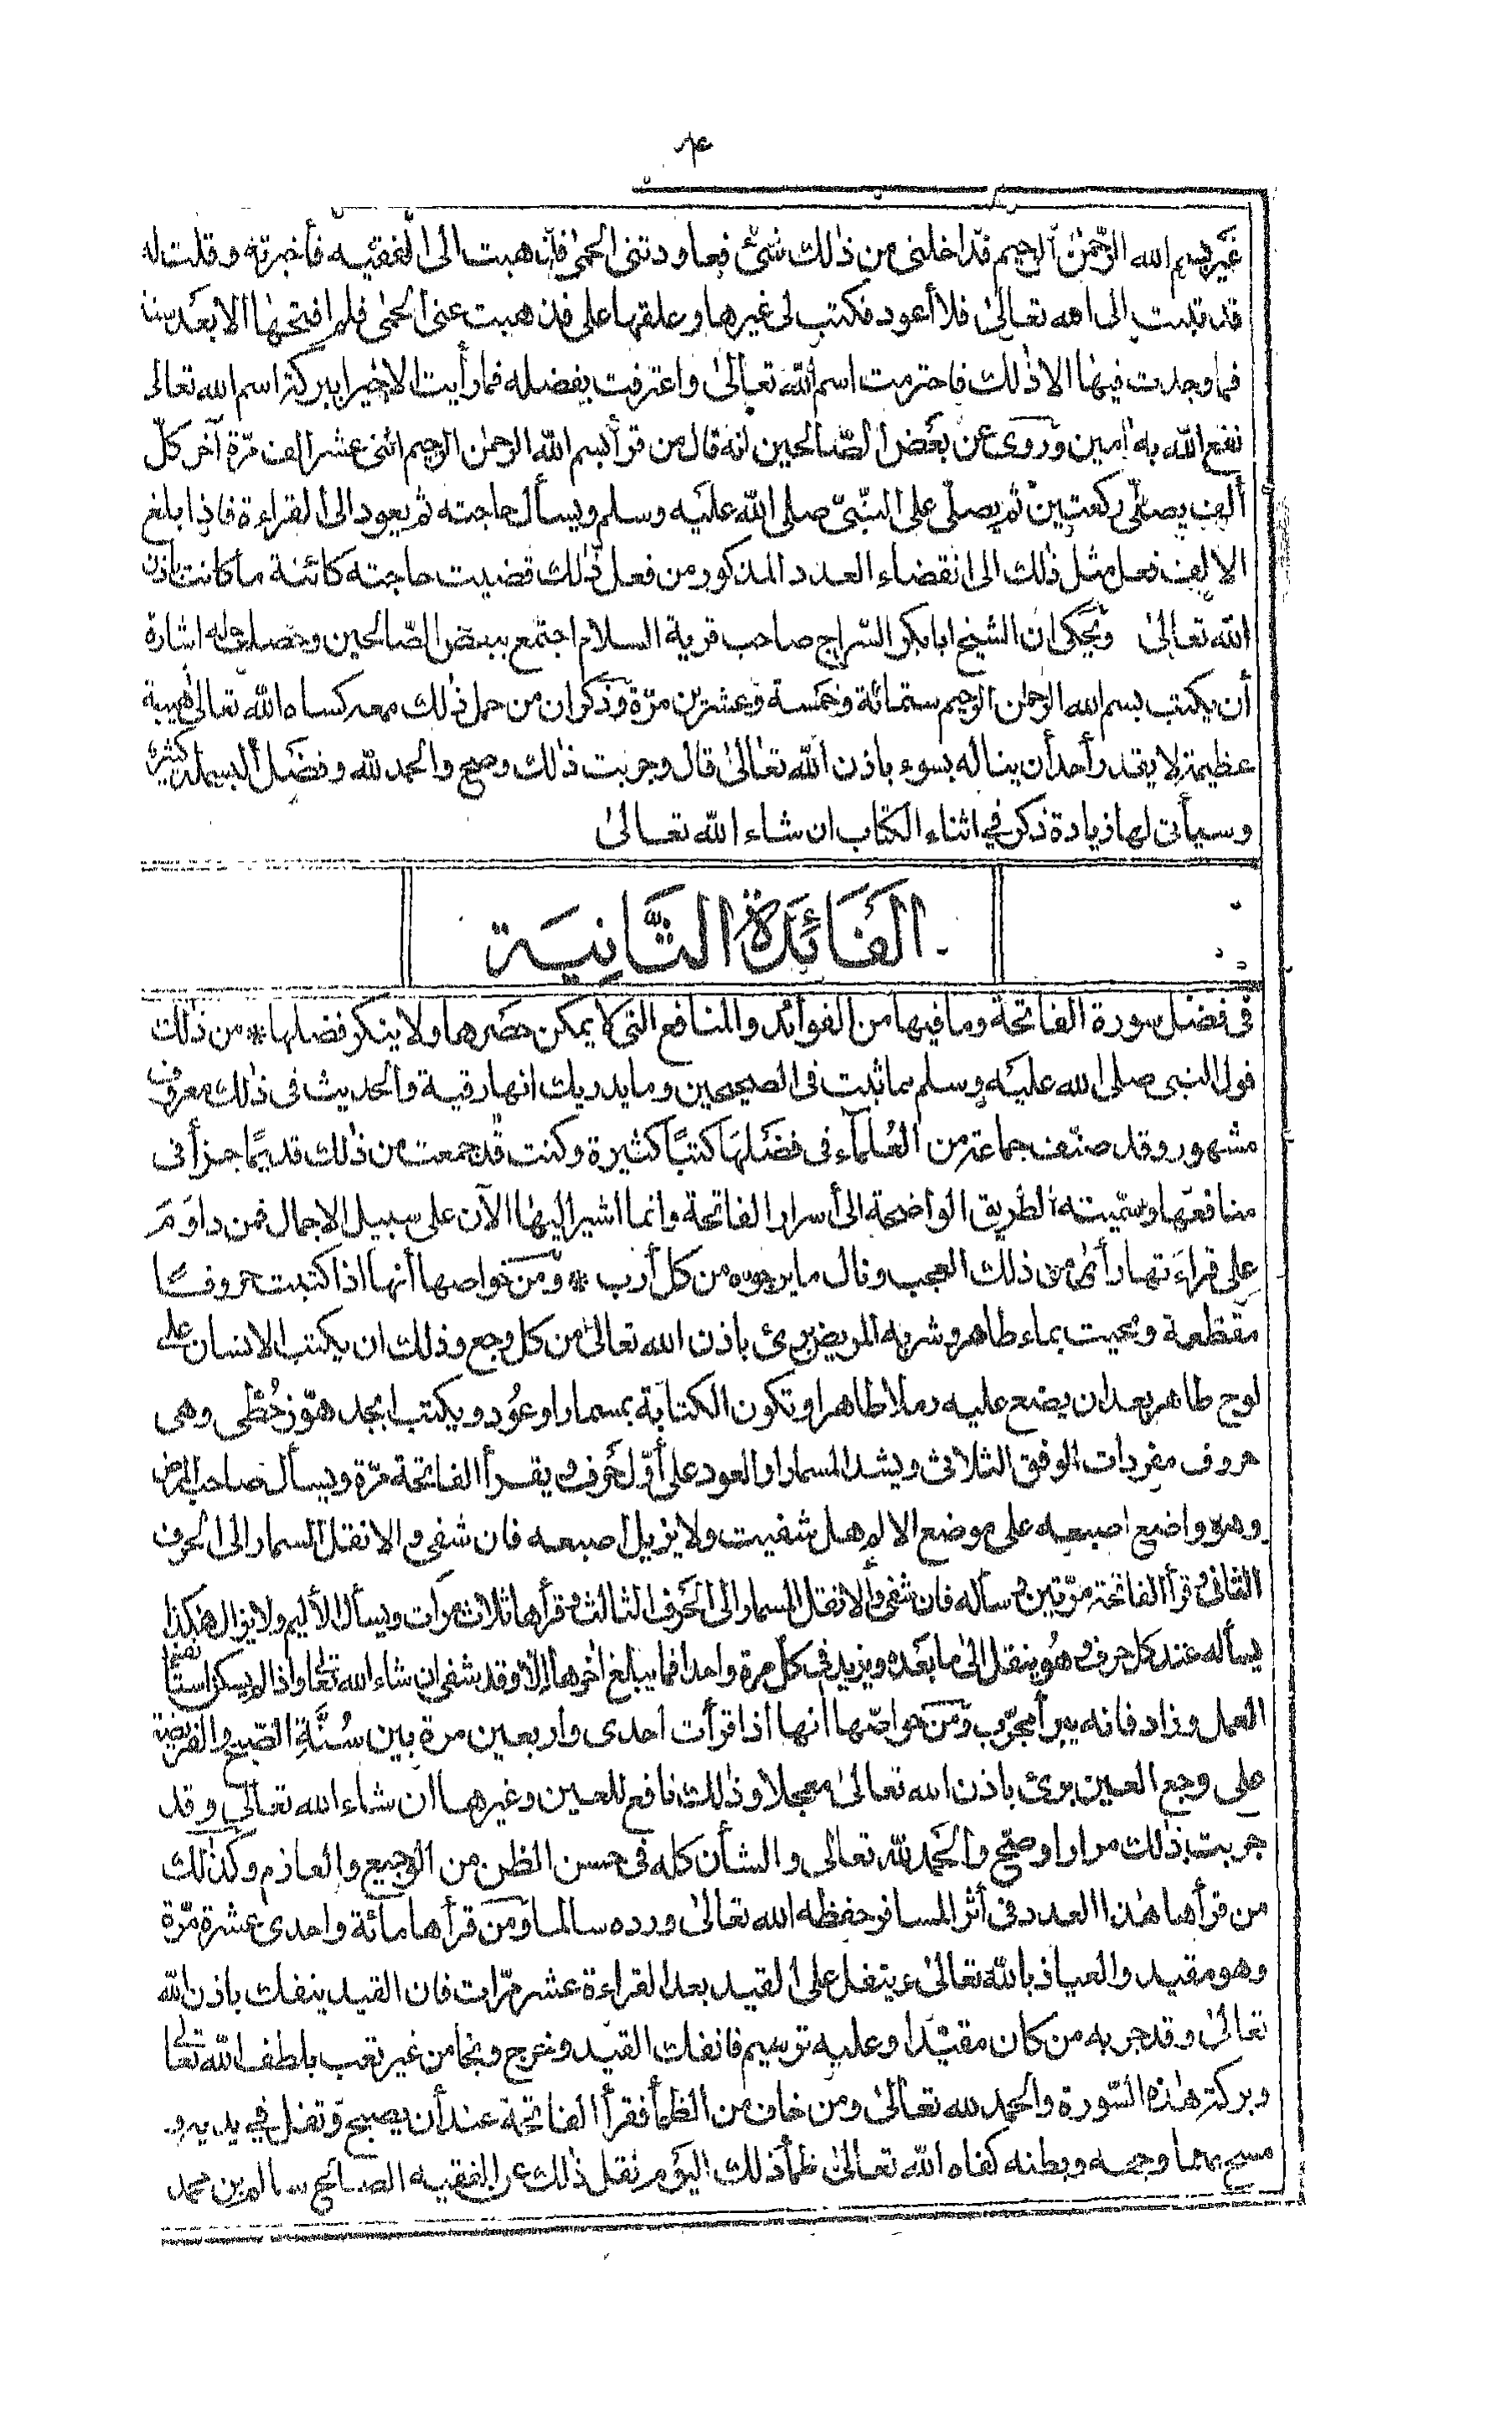 ٤
غير بسم الله الرحمٰن الرحيم فداخلنى من ذٰلك شئ فعاودتنى الحمىٰ فذهبت الى الفقيه فأخبرته وقلت له
قد تبت الى الله تعالىٰ فلا أعود فكتب لى غيرها وعلقها على فذهبت عنى الحمىٰ فلم افتحها الا بعد سنا
فما وجدت فيها الا ذٰلك فاحترمت اسم الله تعالىٰ واعترفت بفضله فما رأيت الا خيرا ببركة اسم الله تعالى
نفع الله به اٰمين وروى عن بعض الصّالحين انه قال من قرأ بسم الله الرحمٰن الرحيم اثنى عشر الف مرّة آخر كلّ
ألف يصلّى ركعتين ثم يصلّى على النّبىّ صلى الله عليه وسلم ويسأل حاجته ثم يعود الى القراءة فاذا بلغ
الالف فعل مثل ذٰلك الى انقضاء العدد المذكور من فعل ذٰلك قضيت حاجته كائنة ما كانت باذن
الله تعالىٰ ويحكى ان الشيخ ابابكر السّراج صاحب قرية السلام اجتمع ببعض الصّالحين وحصل له اشارة
أن يكتب بسم الله الرحمٰن الرحيم ستمائة وخمسة وعشرين مرّة وذكر ان من حمل ذٰلك معه كساه الله تعالىٰ هيبة
عظيمة لا يقدر أحد أن يناله بسوء باذن الله تعالىٰ قال وجربت ذٰلك وصح والحمد لله وفضل البسملة كثيرة
وسيأتى لها زيادة ذكر في اثناء الكتاب ان شاء الله تعالىٰ
الفَائدَة الثَّانِيَة
فى فضل سورة الفاتحة وما فيها من الفوائد والمنافع التى لا يمكن حصرها ولا ينكر فضلها * من ذٰلك
قول النبى صلى الله عليه وسلم مما ثبت فى الصحيحين وما يدريك انها رقية والحديث فى ذٰلك معروف
مشهور وقد صنّف جماعة من العُلمآء فى فضلها كتبًا كثيرة وكنت قد جمعت من ذٰلك قديمًا جزأ فى
منافعها وسمّيته الطريق الواضحة الى أسرار الفاتحة وانما اشير اليها الآن على سبيل الاجمال فمن داوَمَ
على قراءتها رأى من ذلك العجب ونال ما يرجوه من كل أرب * ومن خواصها أنها اذا كتبت حروفًا
مقطعة ومحيت بماء طاهر وشربه المريض برئ باذن الله تعالىٰ من كل وجع وذلك ان يكتب الانسان على
لوح طاهر بعد ان يضع عليه رملا طاهرا وتكون الكتابة بمسمار او عُود ويكتب ابجد هوّز حُطّى وهى
حروف مفردات الوفق الثلاثى ويشد المسمار او العود على أوّل حرف ويقرأ الفاتحة مرّة ويسأل صاحب المرض
وهو واضع اصبعه على موضع الالم هل شفيت ولا يزيل اصبعه فان شفى والا نقل المسمار الى الحرف
الثانى وقرأ الفاتحة مرّتين وسأله فان شفى والا نقل المسمار الى الحرف الثالث وقرأها ثلاث مرات ويسأل الأليم ولا يزال هٰكذا
يسأله عند كل حرف وهُو ينقل الىٰ ما بعده ويزيد فى كل مرة واحدا فما يبلغ اٰخرها إلا وقد شفى ان شاء الله تعالىٰ واذا لم يسكن استأنف
العمل وزاد فانه يبرأ مجرّب ومن خواصّها انها اذا قرأت احدى واربعين مرة بين سُنَّة الصّبح والفريضة
على وجع العين برئ باذن الله تعالىٰ معجلا وذٰلك نافع للعين وغيرها ان شاء الله تعالىٰ وقد
جربت ذٰلك مرارا وصحّ والحمد لله تعالى والشأن كله فى حسن الظن من الوجيع والعازم وكذٰلك
من قرأها هٰذا العدد فى أثر المسافر حفظه الله تعالىٰ ورده سالما ومن قرأها مائة واحدى عشرة مرّة
وهو مقيد والعياذ بالله تعالىٰ ويتفل على القيد بعد القراءة عشر مرّات فان القيد ينفك باذن الله
تعالىٰ وقد جربه من كان مقيّدا وعليه ترسيم فانفك القيد وخرج ونجا من غير تعب بلطف الله تعالىٰ
وبركة هٰذه السّورة والحمد لله تعالىٰ ومن خاف من الظمأ فقرأ الفاتحة عند أن يصبح وتفل في يديه و
مسح بهما وجهه وبطنه كفاه الله تعالىٰ ظمأ ذلك اليوم نقل ذٰلك عن الفقيه الصالح سالم بن محمد